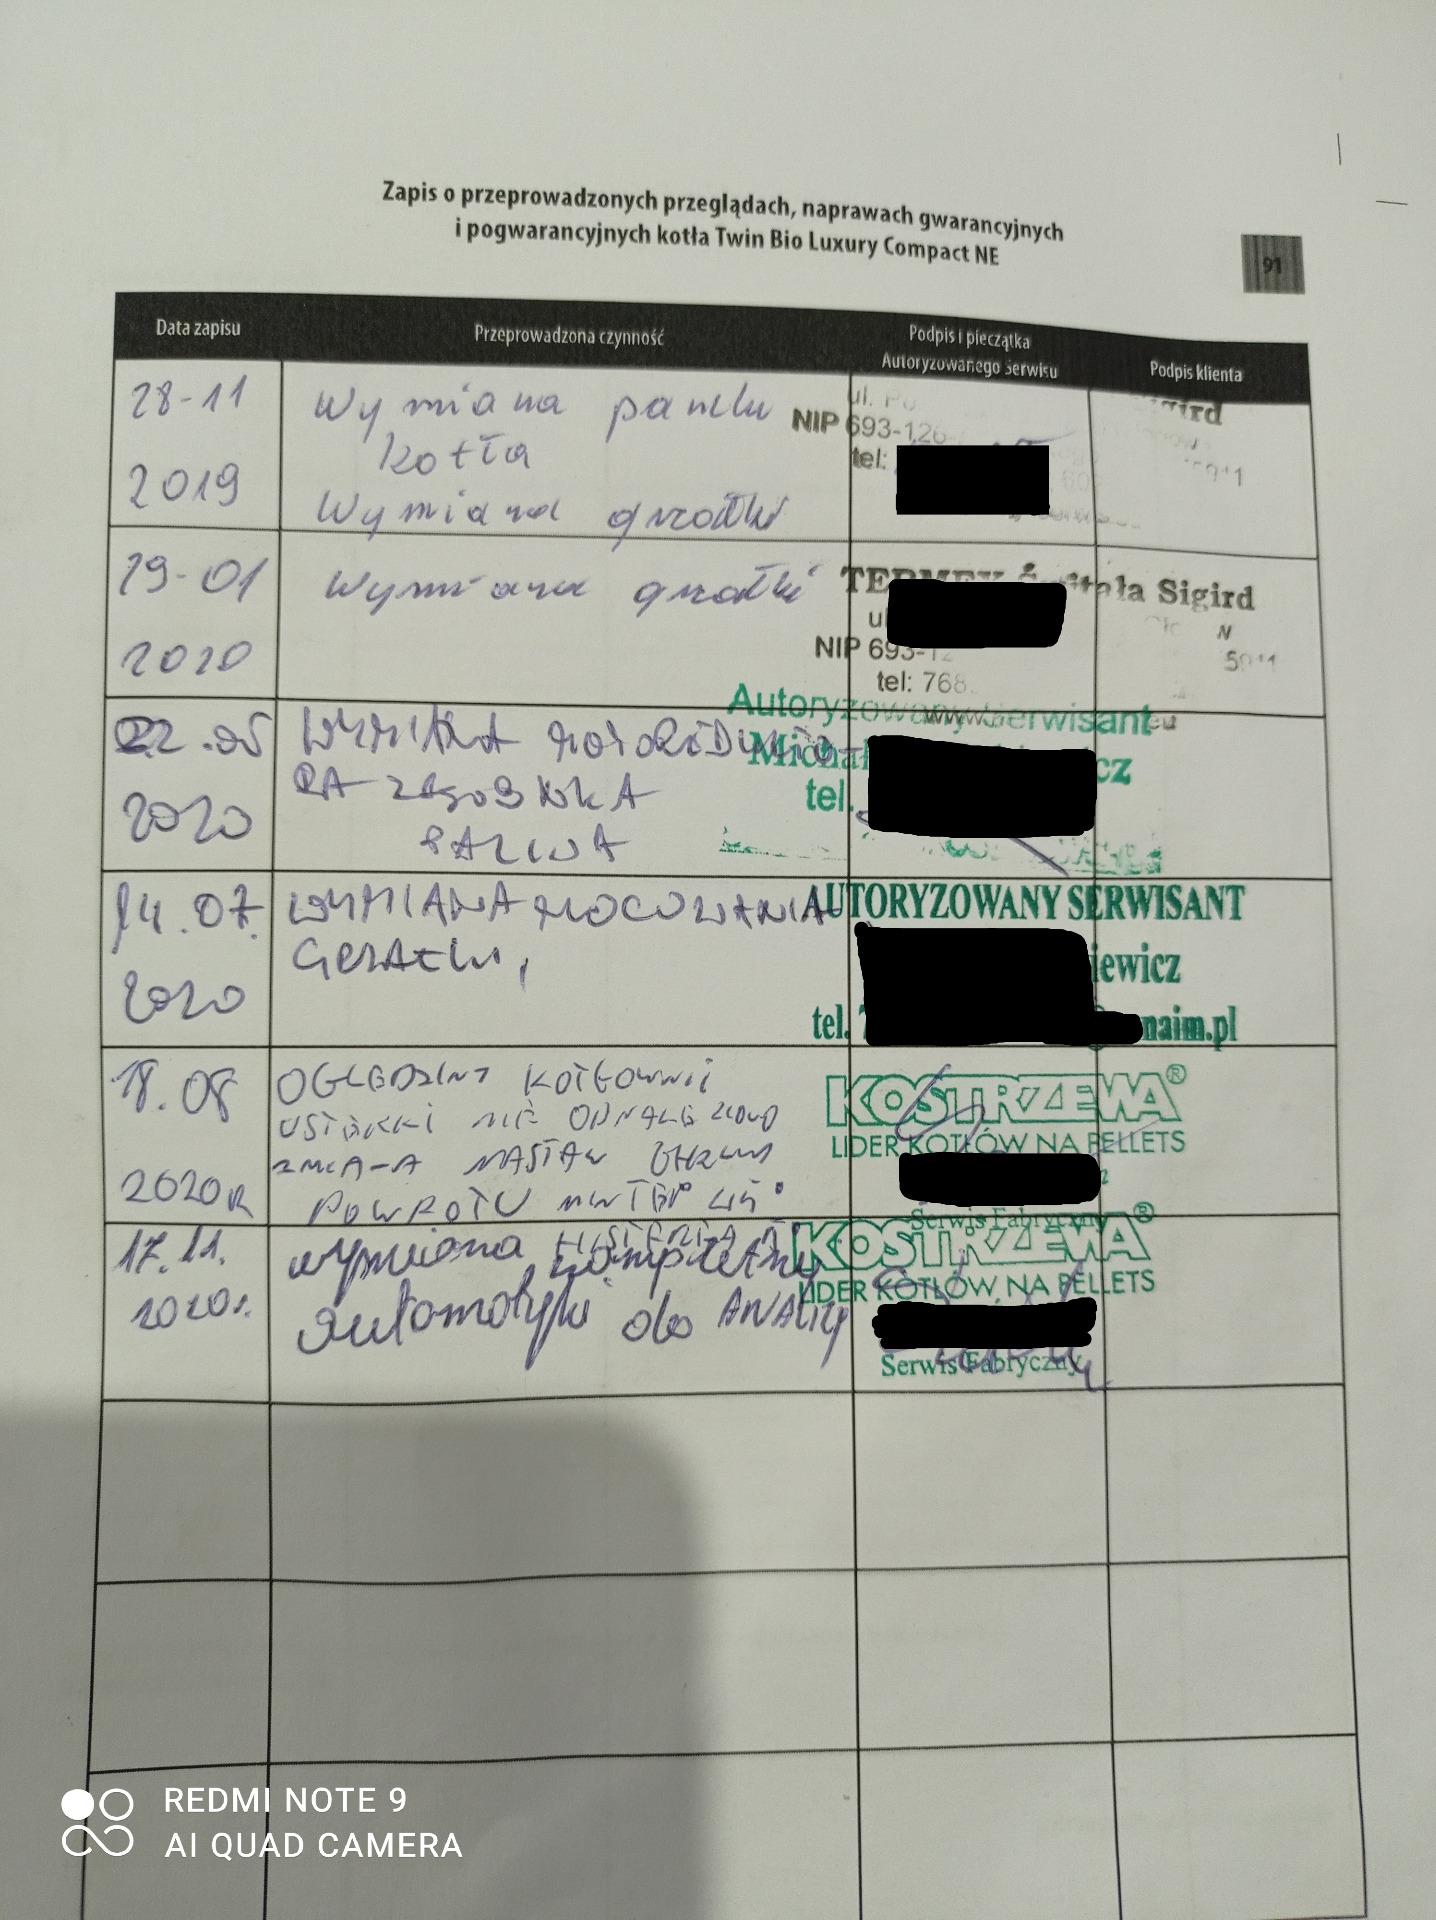 Zapis o przeprowadzonych przeglądach, naprawach gwarancyjnych
i pogwarancyjnych kotła Twin Bio Luxury Compact NE
91
Data zapisu
Przeprowadzona czynność
Podpis i pieczątka
Autoryzowanego Serwisu
Podpis klienta
28-11
2019
Wymiana panelu
kotła
Wymiana grzałki
ul. Po
NIP 693-126-
tel:
Sigird
29-01
2020
Wymiana grzałki
TERMEX Sigird
ul
NIP 693-12
tel: 768
22.05
2020
WYMIANA MOTOREDUKTO-
RA ZASOBNIKA
PALIWA
Autoryzowany Serwisant
Michał cz
tel.
14.07.
2020
WYMIANA MOCOWANIA
GRZAŁKI,
AUTORYZOWANY SERWISANT
iewicz
tel. naim.pl
18.08
2020R
OGLĘDZINY KOTŁOWNI
USTERKI NIE ODNALEZIONO
NASTAW
POWROTU
KOSTRZEWA®
LIDER KOTŁÓW NA PELLETS
Serwis Fabryczny
17.11.
2020r.
wymiana kompletnej
automatyki do ANALIZY
KOSTRZEWA®
LIDER KOTŁÓW NA PELLETS
Serwis Fabryczny
REDMI NOTE 9
AI QUAD CAMERA